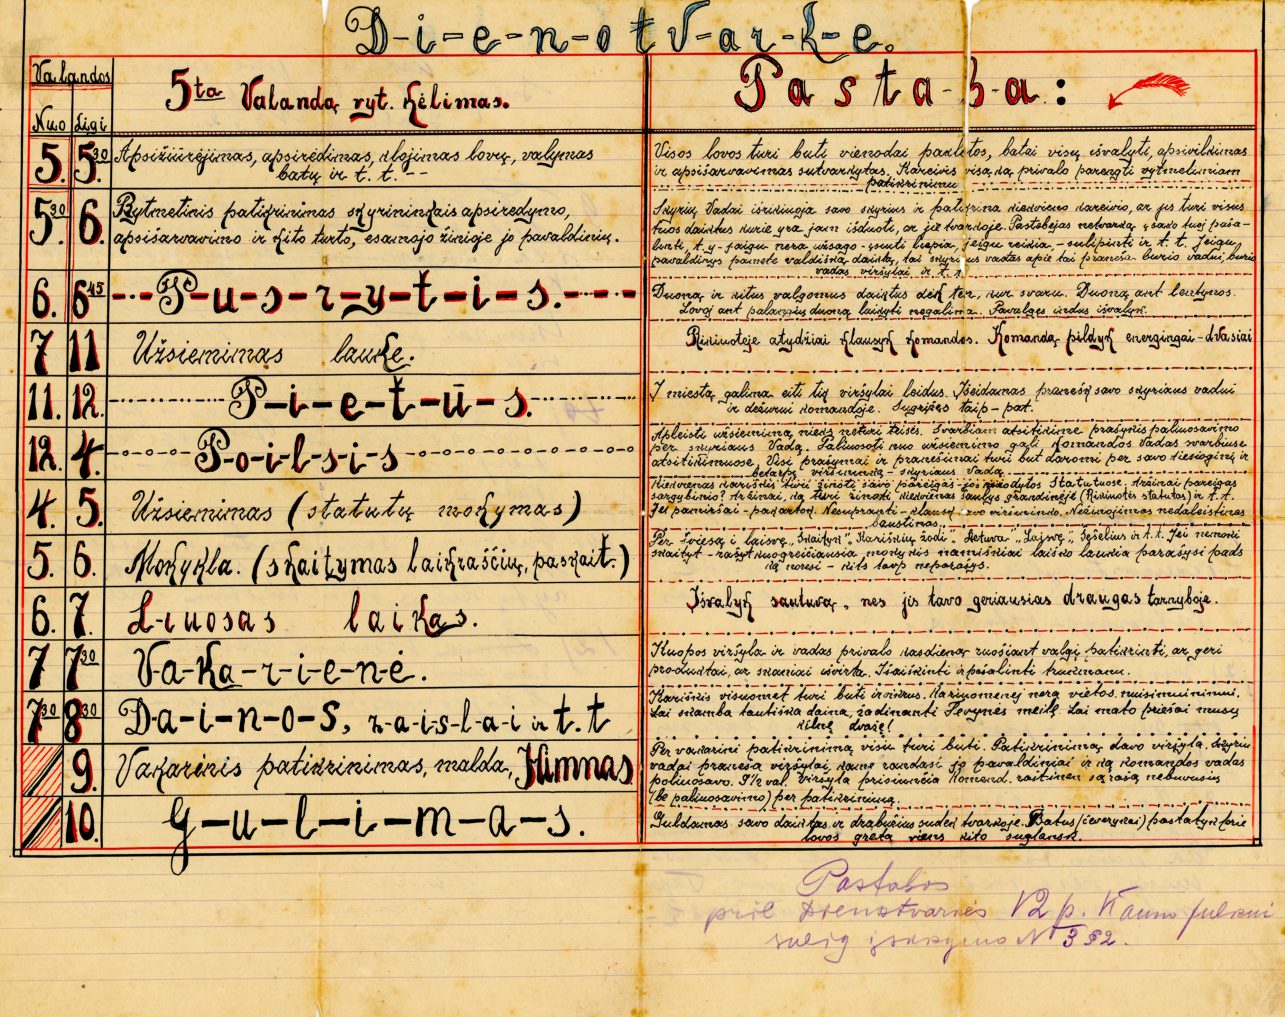 D-i-e-n-o-t-v-a-r-k-ė.
Valandos
Nuo Ligi
5ta Valandą ryt. Kėlimas.
P a s t a - b - a :
5. 5.30 Apsižiūrėjimas, apsirėdimas, klojimas lovų, valymas
batų ir t. t. --
Visos lovos turi buti vienodai paklotos, batai visų išvalyti, apsivilkimas
ir apsišarvavimas sutvarkytas. Kareivis viską privalo parengti rytmetiniam
patikrinimui
5.30 6. Rytmetinis patikrinimas skyrininkais apsiredymo,
apsišarvavimo ir kito turto, esamojo žinioje jo pavaldinių.
Skyrių Vadai išrikiuoja savo skyrius ir patikrina kiekvieno kareivio, ar jis turi visus
tuos daiktus kurie yra jam išduoti, ar jie tvarkoje. Pastebėjęs netvarką įsako tuoj paša-
linti, t. y. jeigu nera užsago-įsiuti liepia, jeigu reikia, - sulipinti ir t. t. Jeigu
pavaldinys pametė valdišką daiktą, tai skyriaus vadas apie tai praneša burio vadui, burio
vadas viršylai ir t. t.
6. 6.45 P-u-s-r-y-t-i-s.
Duoną ir kitus valgomus daiktus dėk ten, kur svaru. Duoną ant lentynos.
Lovoj ant palangių duoną laikyti negalima. Pavalgęs indus išvalyk.
7 11 Užsiemimas lauke.
Rikiuotėje atydžiai klausyk komandos. Komandą pildyk energingai-dvasiai
11. 12. P-i-e-t-ū-s.
Į miestą galima eiti tik viršylai leidus. Išeidamas pranešk savo skyriaus vadui
ir dežurui komandoje. Sugrįžęs taip-pat.
12. 4. P-o-i-l-s-i-s
Apleisti užsiemimą nieks neturi teisės. Svarbiam atsitikime prašykis paliuosavimo
per skyriaus Vadą. Paliuosoti nuo užsiemimo gali Komandos Vadas svarbiuse
atsitikimuose. Visi prašymai ir pranešimai turi but daromi per savo tiesioginį ir
betarpį viršininką - skyriaus Vadą
4. 5. Užsiemimas (statutų mokymas)
Kiekvienas kariškis turi žinoti savo pareigas-jos nurodytos Statutuose. Ar žinai pareigas
sargybinio? Ar žinai, ką turi žinoti kiekvienas šaulys grandinėje (Rikiuotės statutas) ir t. t.
Jei pamiršai - pakartok. Nesupranti - klausk savo viršininko. Nežinojimas nedaleistinas
baustinas.
5. 6. Mokykla. (skaitymas laikraščių, paskait.)
Per šviesą į laisvę. Skaityk „Kariškių žodį" „Lietuva" „Laisvę" „Sešelius ir t. t. Jei nemoki
skaityt - rašyt kuogreičiausia mokykis namiškiai laiško laukia parašysi pats
ką norėsi - kits taip neparašys.
6. 7. Liuosas laikas.
Išvalyk šautuvą, nes jis tavo geriausias draugas tarnyboje.
7 7.30 Va-ka-r-i-e-n-ė.
Kuopos viršyla ir vadas privalo kasdieną ruošiant valgį patikrinti, ar geri
produktai, ar skaniai išvirta. Išaiškinti ir pašalinti trukumam.
7.30 8.30 D-a-i-n-o-s, ž-a-i-s-l-a-i ir t. t
Kariškis visuomet turi buti žvirus. Kariuomenėj nerą vietos nusiminimui.
Lai skamba tautiška daina, žadinanti Tevynės meilę. Lai mato priešai musų
kilnę dvasę!
9. Vakarinis patikrinimas, malda, Himnas
Per vakarini patikrinimą visu turi buti. Patikrinimą davo viršyla. Skyriu
vadai praneša viršylai, kame randasi jo pavaldiniai ir ką komandos vadas
poliuosavo. 9½ val. viršyla prisiunčia Komend. raštinen sąrašą nebuvusių
(be paliuosavimo) per patikrinimą.
10. G-u-l-i-m-a-s.
Guldamas savo daiktus ir drabužius sudėk tvarkoje. Batus (čeverykai) pastatyk prie
lovos greta viens kito suglausk.
Pastabos
prie Dienotvarkės V2 p. Kauno pulkui
sulig įsakymo N 3 § 2.